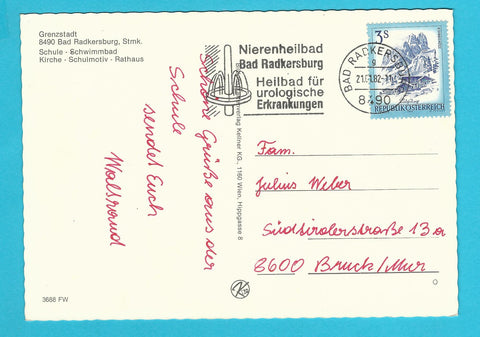 Grenzstadt
8490 Bad Radkersburg, Stmk.
Schule - Schwimmbad
Kirche - Schulmotiv - Rathaus
Nierenheilbad
Bad Radkersburg
Heilbad für
urologische
Erkrankungen
BAD RADKERSB
8490
3 S
REPUBLIK ÖSTERREICH
Schöne Grüße aus der
Schule
sendet Euch
Waltraud
Verlag Kellner KG., 1160 Wien, Hippgasse 8
Fam.
Julius Weber
Südtirolerstraße 13a
8600 Bruck/Mur
3688 FW